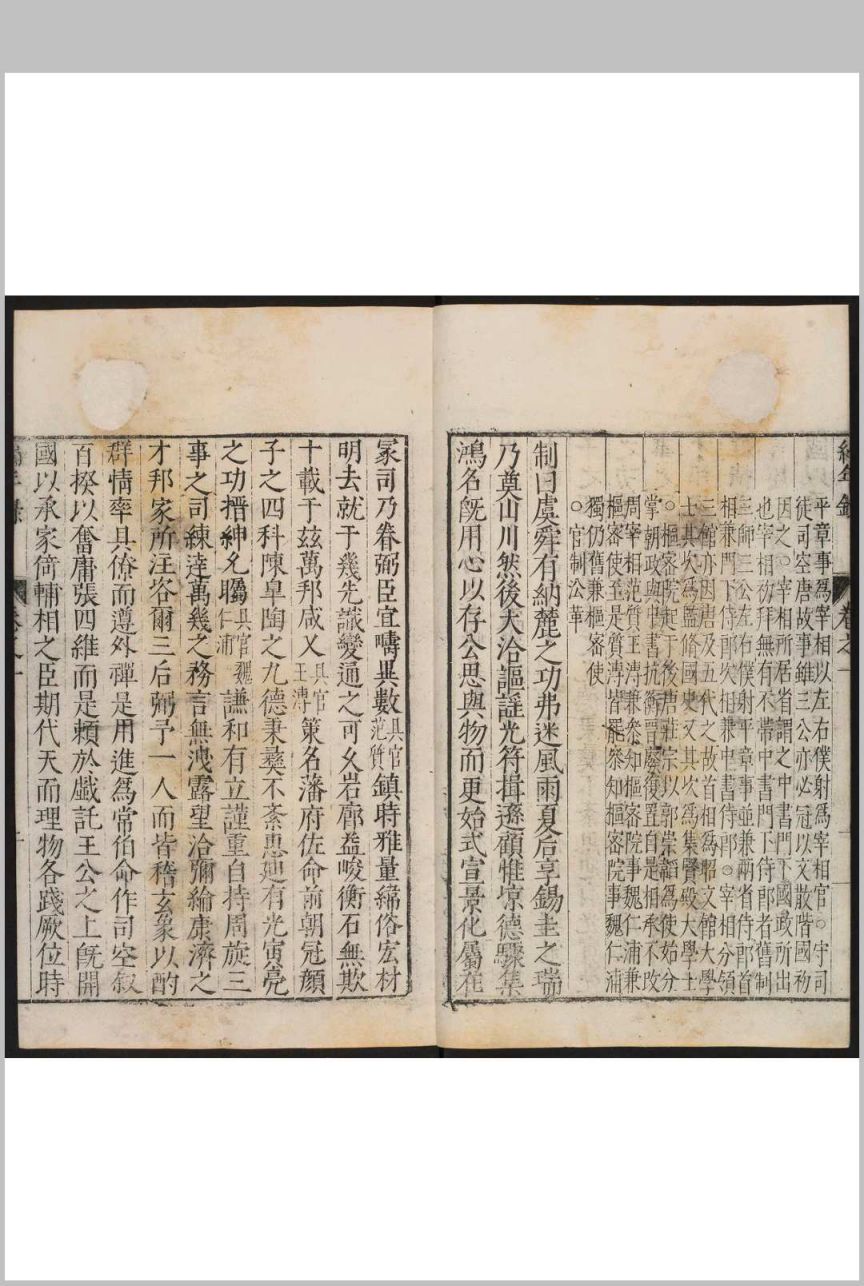 平章事爲宰相以左右僕射爲宰相官○守司
徒司空唐故事雖三公亦必冠以文散階國初
因之○宰相所居省謂之中書門下國政所出
也宰相初拜無有不帶中書門下侍郎者舊制
三師三公左右僕射平章事並兼兩省侍郎首
相兼門下侍郎次相兼中書侍郎○宰相分領
三館亦因唐及五代之故首相爲昭文館大學
士其次爲監脩國史又其次爲集賢殿大學士
○樞密院起于後唐莊宗以郭崇韜爲使始分
掌朝政與中書抗衡晉廢復置自是相承不改
周宰相范質王溥兼叅知樞密院事魏仁浦兼
樞密使至是質溥皆罷叅知樞密院事魏仁浦
獨仍舊兼樞密使
○官制公革
制曰虞舜有納麓之功弗迷風雨夏后享錫圭之瑞
乃奠山川然後大洽謳謡光符揖遜顧惟涼德驟集
鴻名旣用心以存公思與物而更始式宣景化屬在
冢司乃眷弼臣宜疇異數具官范質鎮時雅量縟俗宏材
明去就于幾先識變通之可久岩廓益峻衡石無欺
十載于兹萬邦咸乂具官王溥策名藩府佐命前朝冠顏
子之四科陳皐陶之九德秉彝不紊惠廸有光寅亮
之功搢紳允矚具官魏仁浦謙和有立謹重自持周旋三
事之司練達萬幾之務言無洩露望洽彌綸康濟之
才邦家所注咨爾三后弼予一人而皆稽玄象以酌
群情率具僚而遵外禪是用進爲常伯命作司空叙
百揆以奮庸張四維而是頼於戲託王公之上旣開
國以承家倚輔相之臣期代天而理物各踐厥位時
編年錄
卷之一